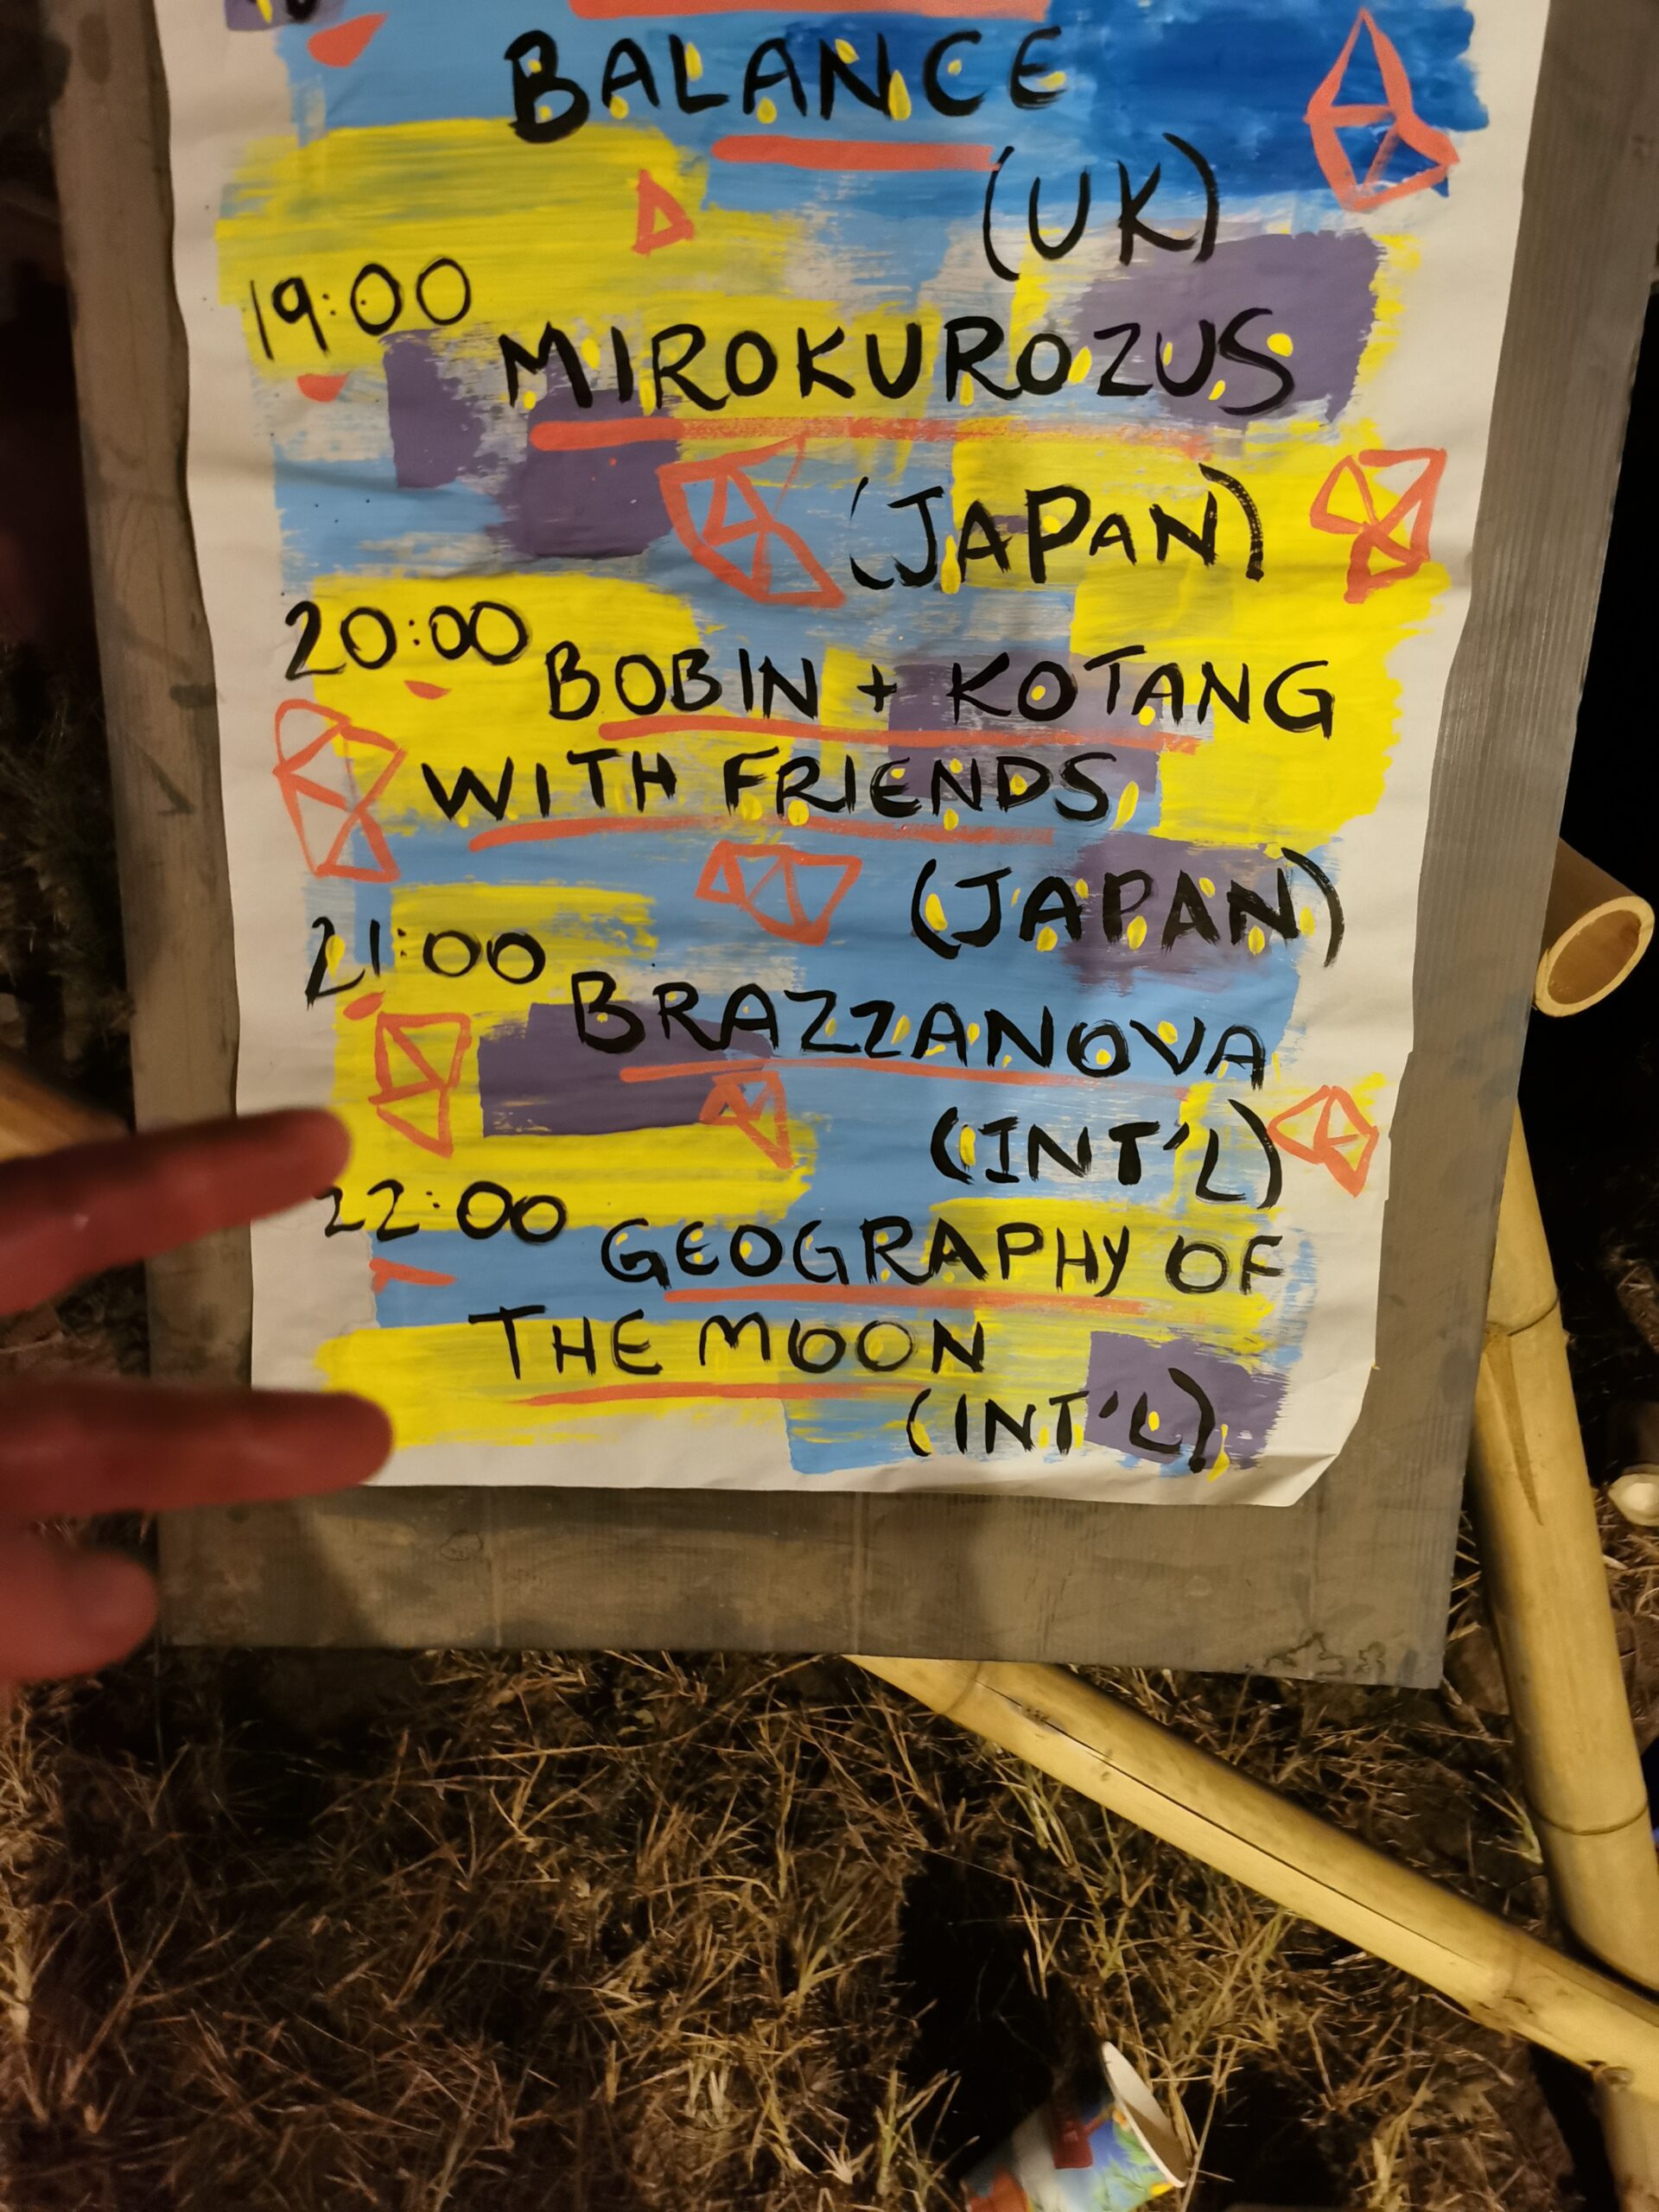 BALANCE
(UK)
19:00
MIROKUROZUS
(JAPAN)
20:00
BOBIN + KOTANG
WITH FRIENDS
(JAPAN)
21:00
BRAZZANOVA
(INT'L)
22:00
GEOGRAPHY OF
THE MOON
(INT'L)